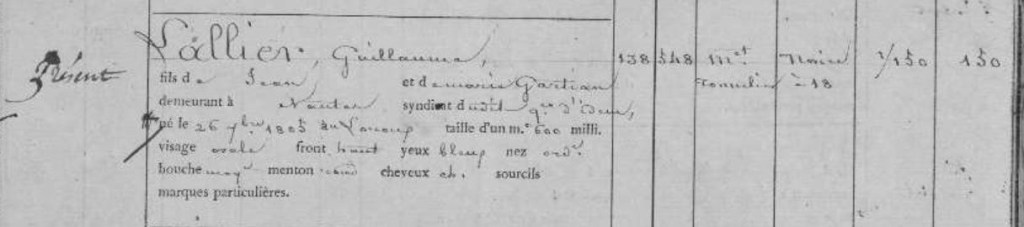 Présent
Lallier, Guillaume, 138 548 mot novice 1/150 150
fils de Jean et de marie Gartian tonnelier à 18
demeurant à Nantes syndicat dudit qer d'idem,
né le 26 7bre 1805 au taille d'un m. 600 milli.
visage ovale front haut yeux bleus nez ordre
bouche moye menton rond cheveux ch. sourcils
marques particulières.